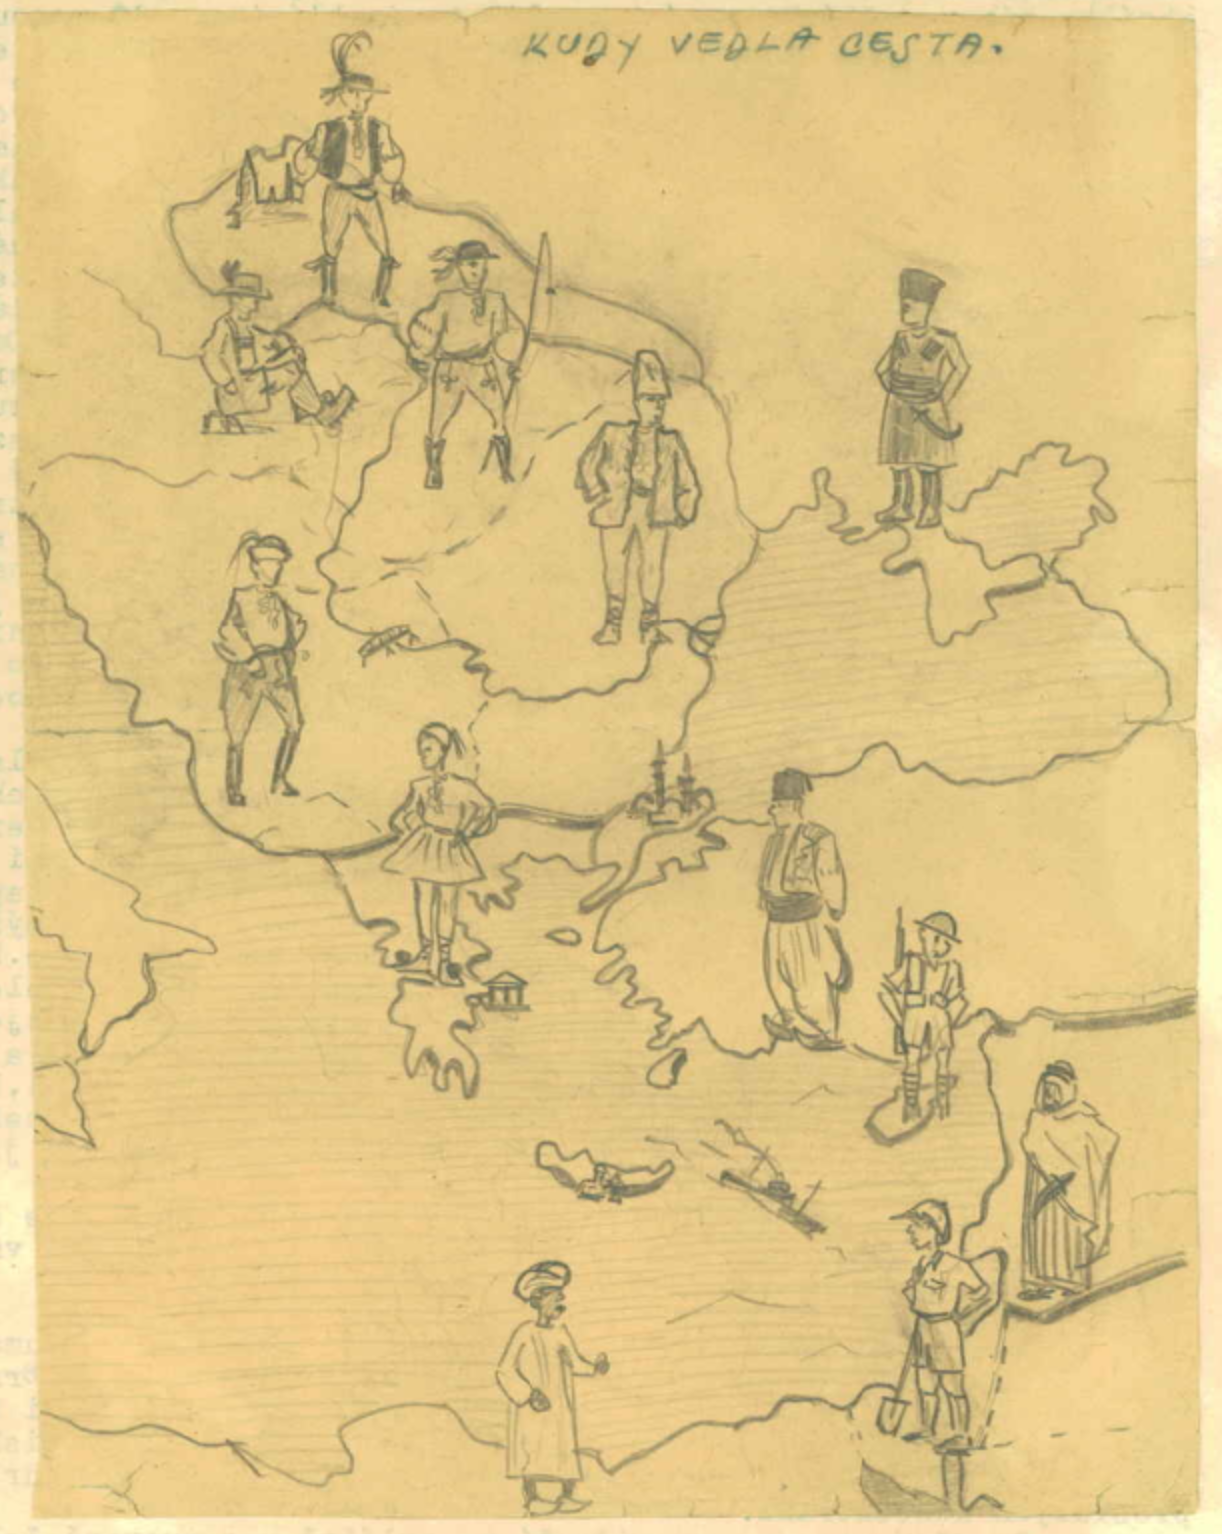 KUDY VEDLA CESTA.